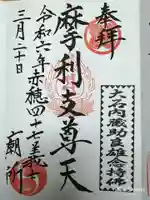 奉拝
大石内蔵助良雄念持佛
摩利支尊天
令和六年赤穂四十七義士
三月二十日
廟所